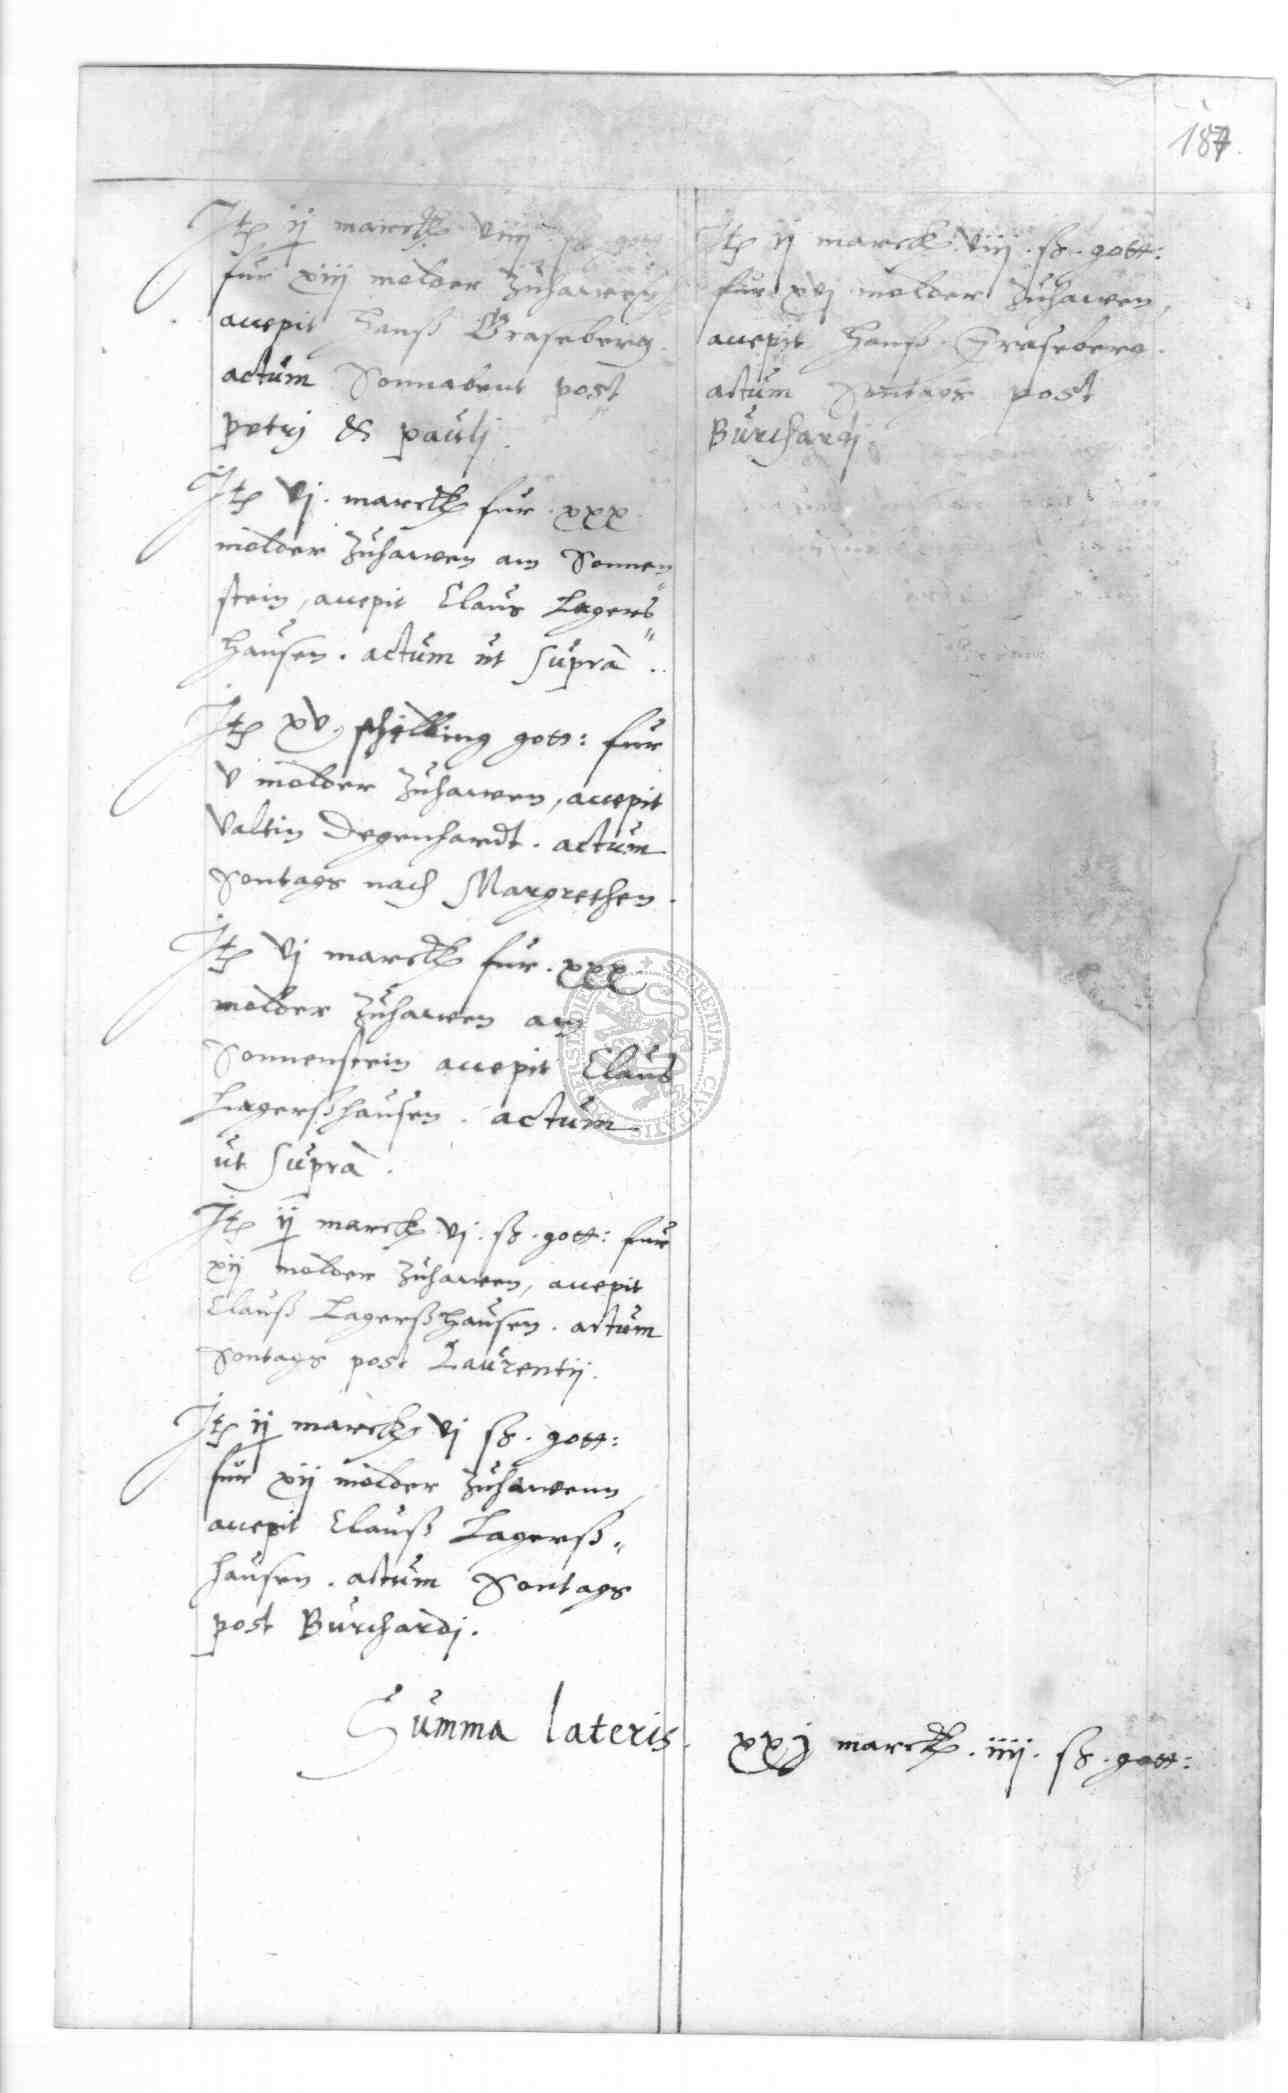 187.
Jtem ij marck viiij ß gott:
fur xiij molder Zuhawen
accepit Hanß Graseberg.
actum Sonnabent post
petrj & paulj.
Jtem vj. marck fur. xxx
molder Zuhawen am Sonnen=
stein, accepit Claus Lagers=
hausen. actum ut supra.
Jtem xv. schilling gott: fur
v molder Zuhawen, accepit
Valtin Degenhardt. actum
Sontags nach Margrethen.
Jtem vj marck fur. xxx
molder Zuhawen am
Sonnenstein accepit Claus
Lagerßhausen. actum
ut supra.
Jtem ij marck vj. ß. gott: fur
xij molder Zuhawen, accepit
Clauß Lagerßhausen. actum
Sontags post Laurentij.
Jtem ij marck vj ß. gott:
fur xij molder Zuhawenn,
accepit Clauß Lagerß=
hausen. actum Sontags
post Burchardj.
Jtem ij marck viij. ß. gott:
fur xvj molder Zuhawen,
accepit Hanß Graseberg.
actum Sontags post
Burchardj
Summa lateris. xxj marck. iiij. ß. gott:
SECRETUM CIVITATIS